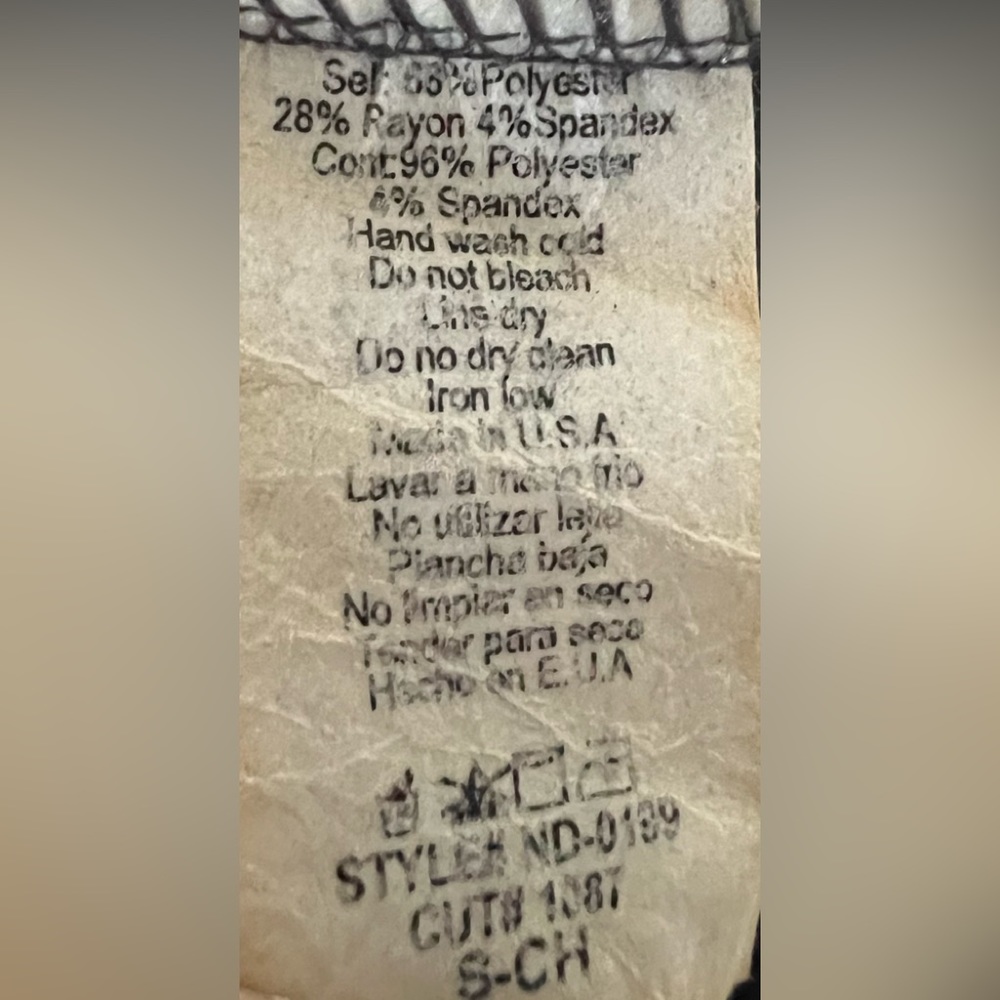 Self: 68% Polyester
28% Rayon 4% Spandex
Cont: 96% Polyester
4% Spandex
Hand wash cold
Do not bleach
Line dry
Do no dry clean
Iron low
Made in U.S.A
Lavar a mano frio
No utilizar lejia
Plancha baja
No limpiar en seco
Tender para seco
Hecho en E.U.A
STYLE# ND-0199
CUT#
S-CH